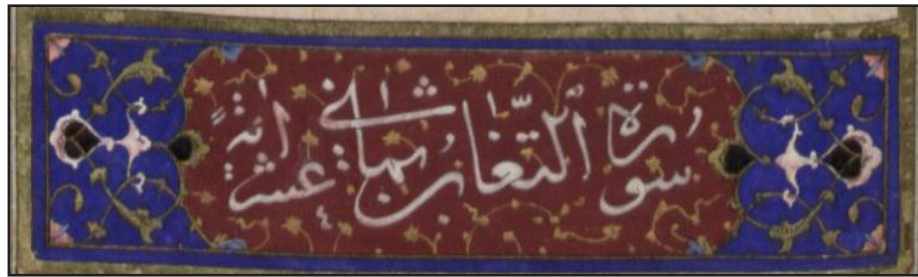 سورة التغابن ثمانى عشر اية